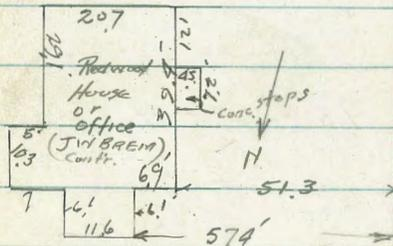 207
121
191
Redwood
House
or
Office
(JW BREM)
Contr.
363
45
126
Conc. steps
5
10.3
N
69'
51.3
7
6.1
6.1'
11.6
574'